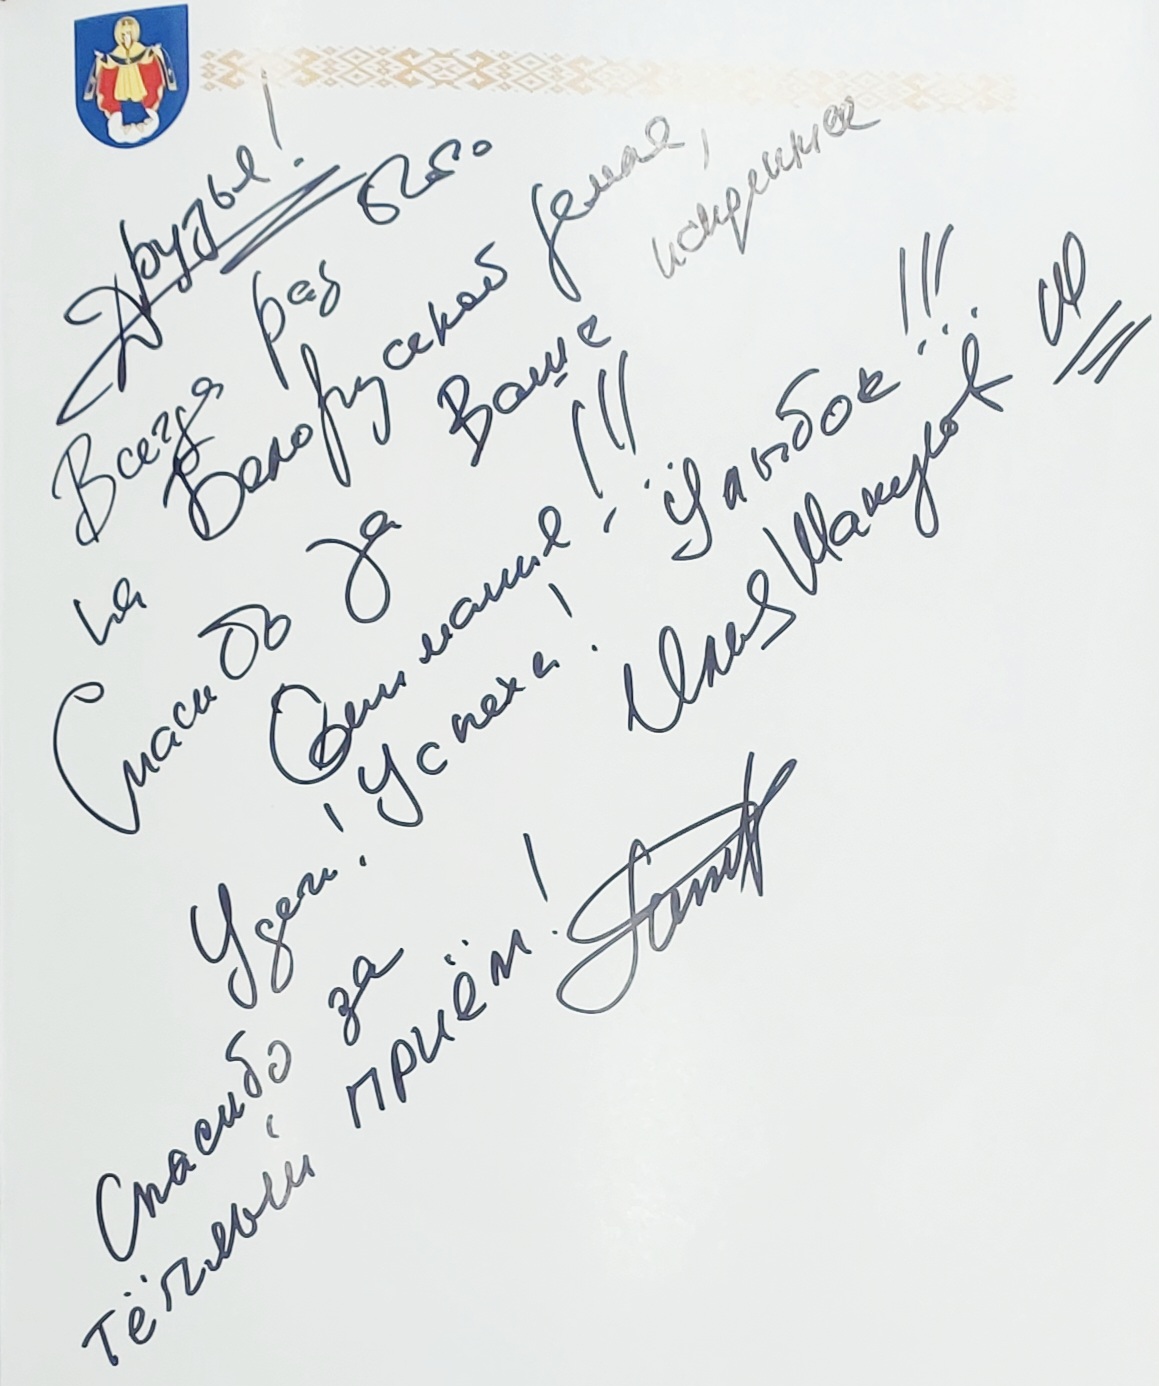 Друзья!
Всегда рад быть
на Белорусской земле,
Спасибо за Ваше искреннее
Внимание!!!
Удачи! Успеха! Улыбок!!!
Илья Шакунов
Спасибо за
тёплый приём!